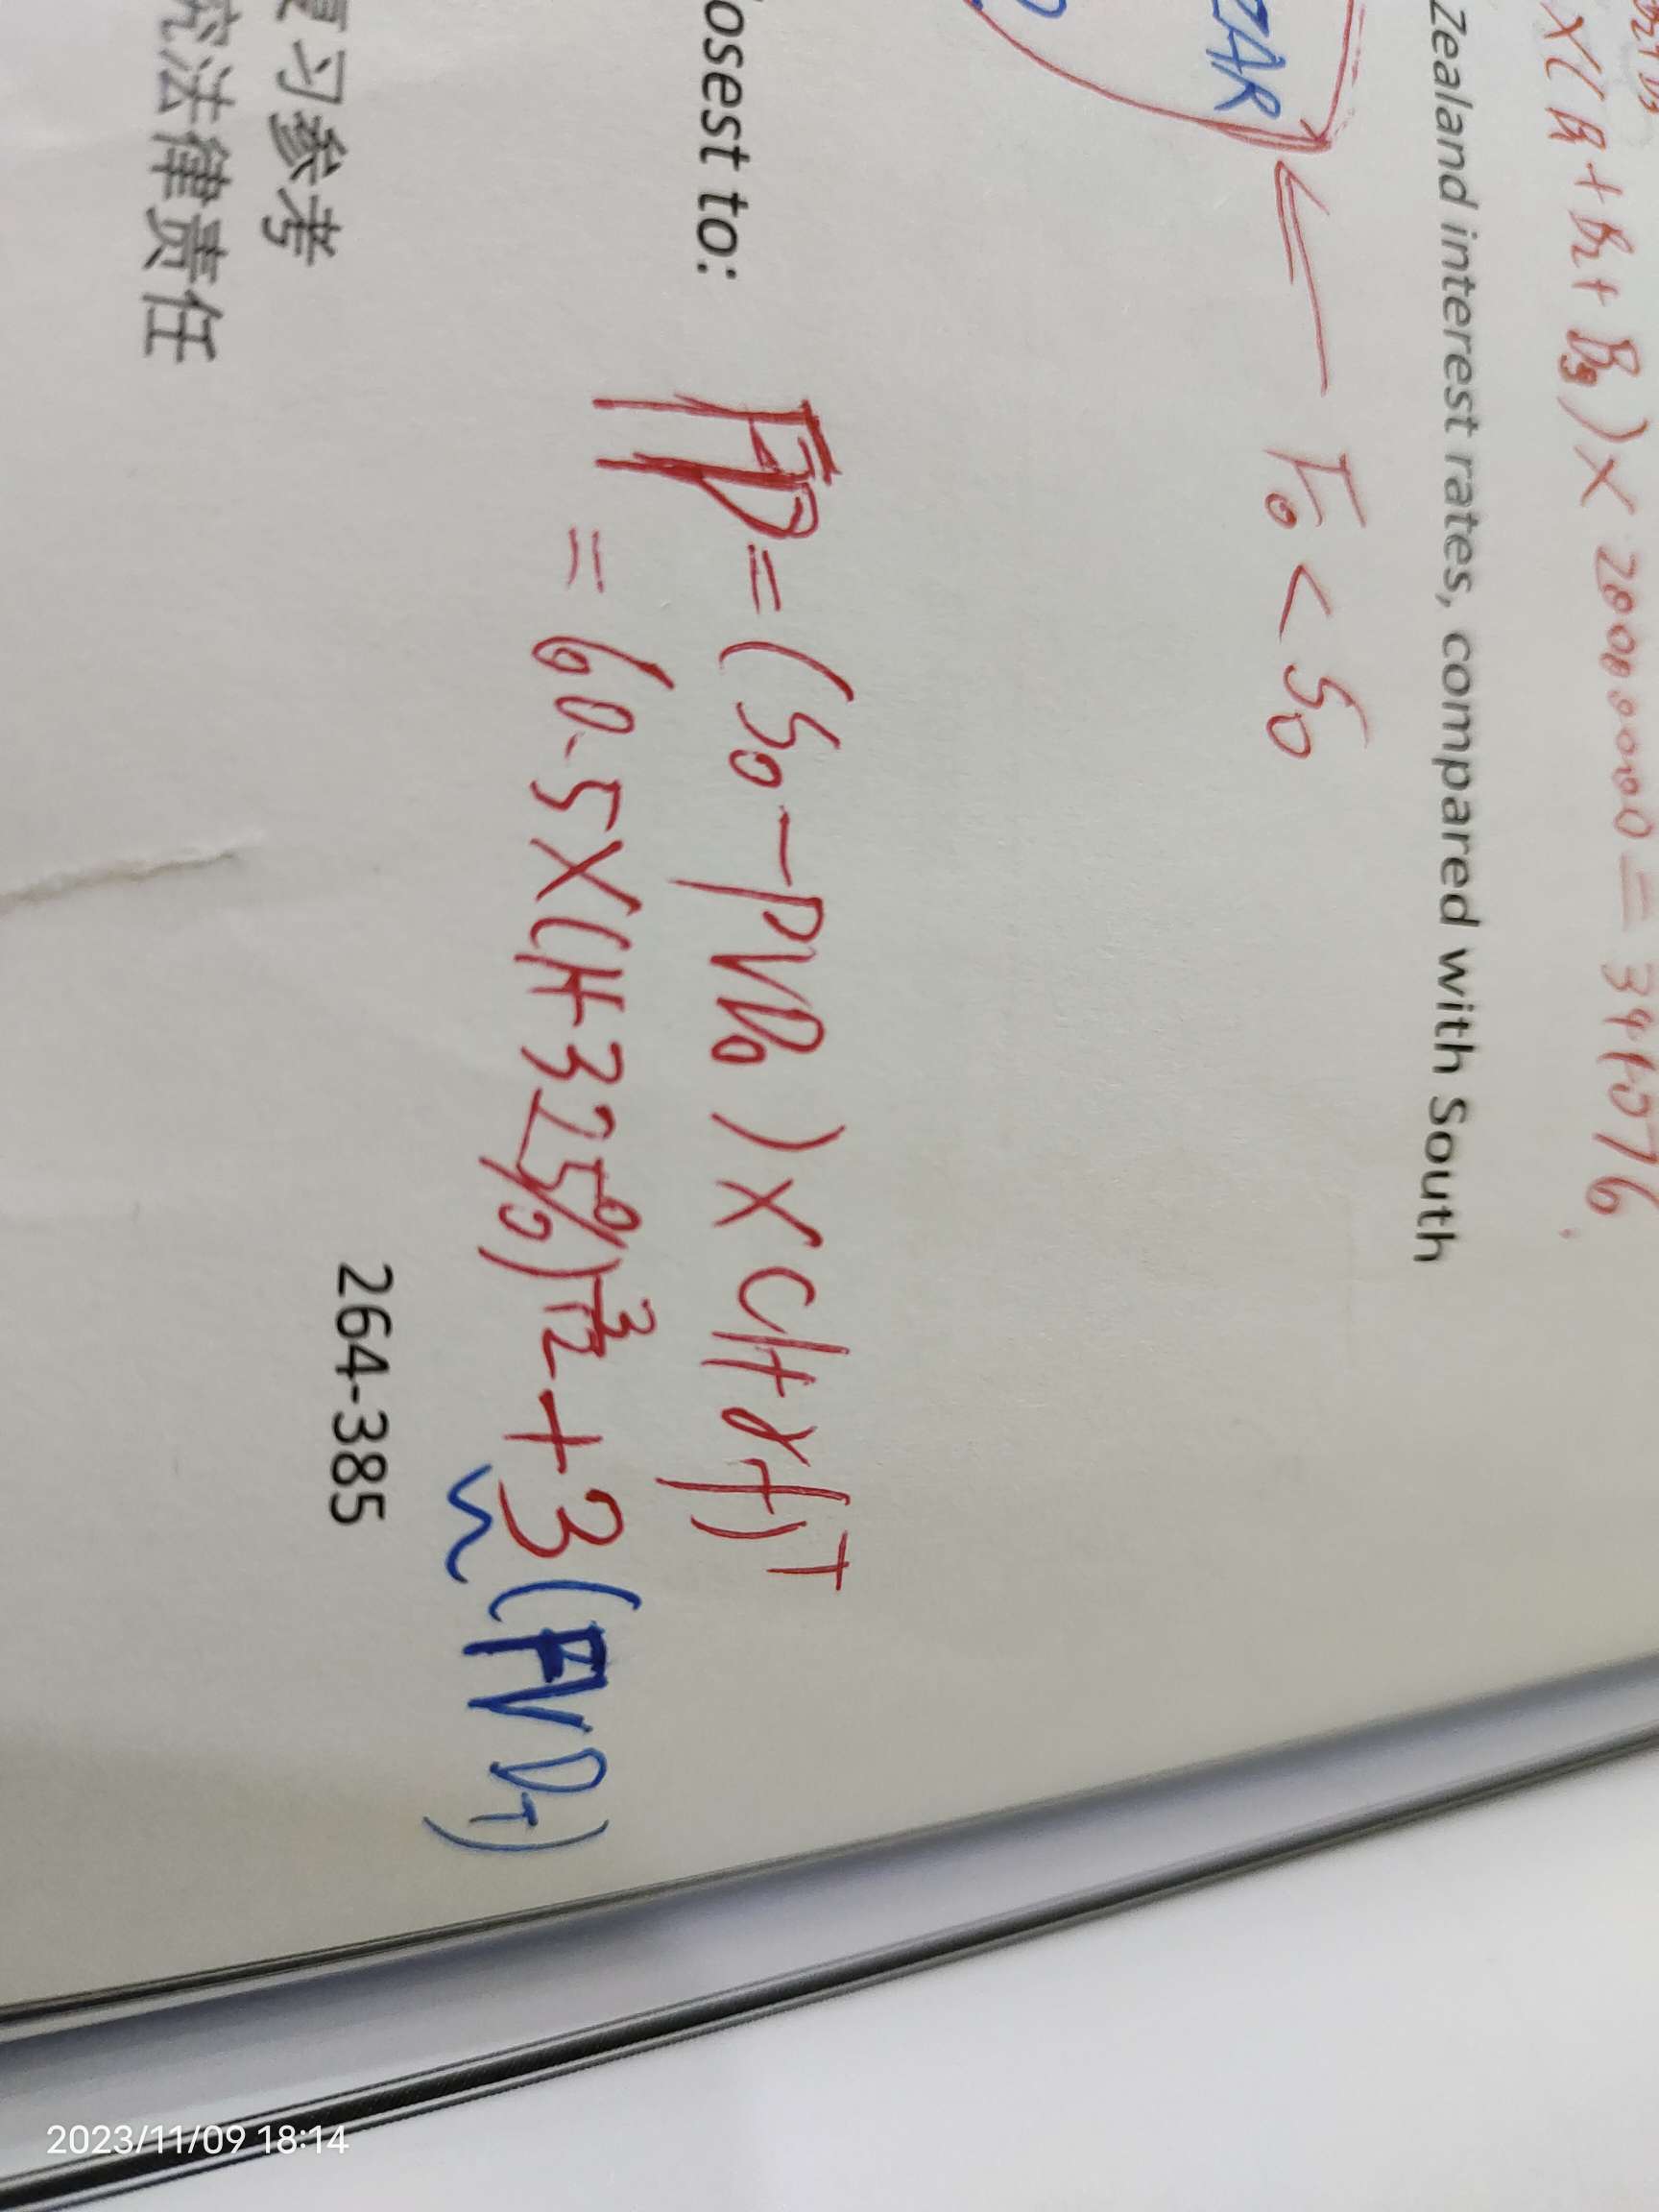 X(B1+B2+B3)X 20000000=341076.
Zealand interest rates, compared with South
ZAR
F0 < S0
osest to:
FP=(S0-PVD0)X(1+rf)^T
=60.5X(1+3.25%)^3/12+3(FVDT)
264-385
复习参考
究法律责任
2023/11/09 18:14